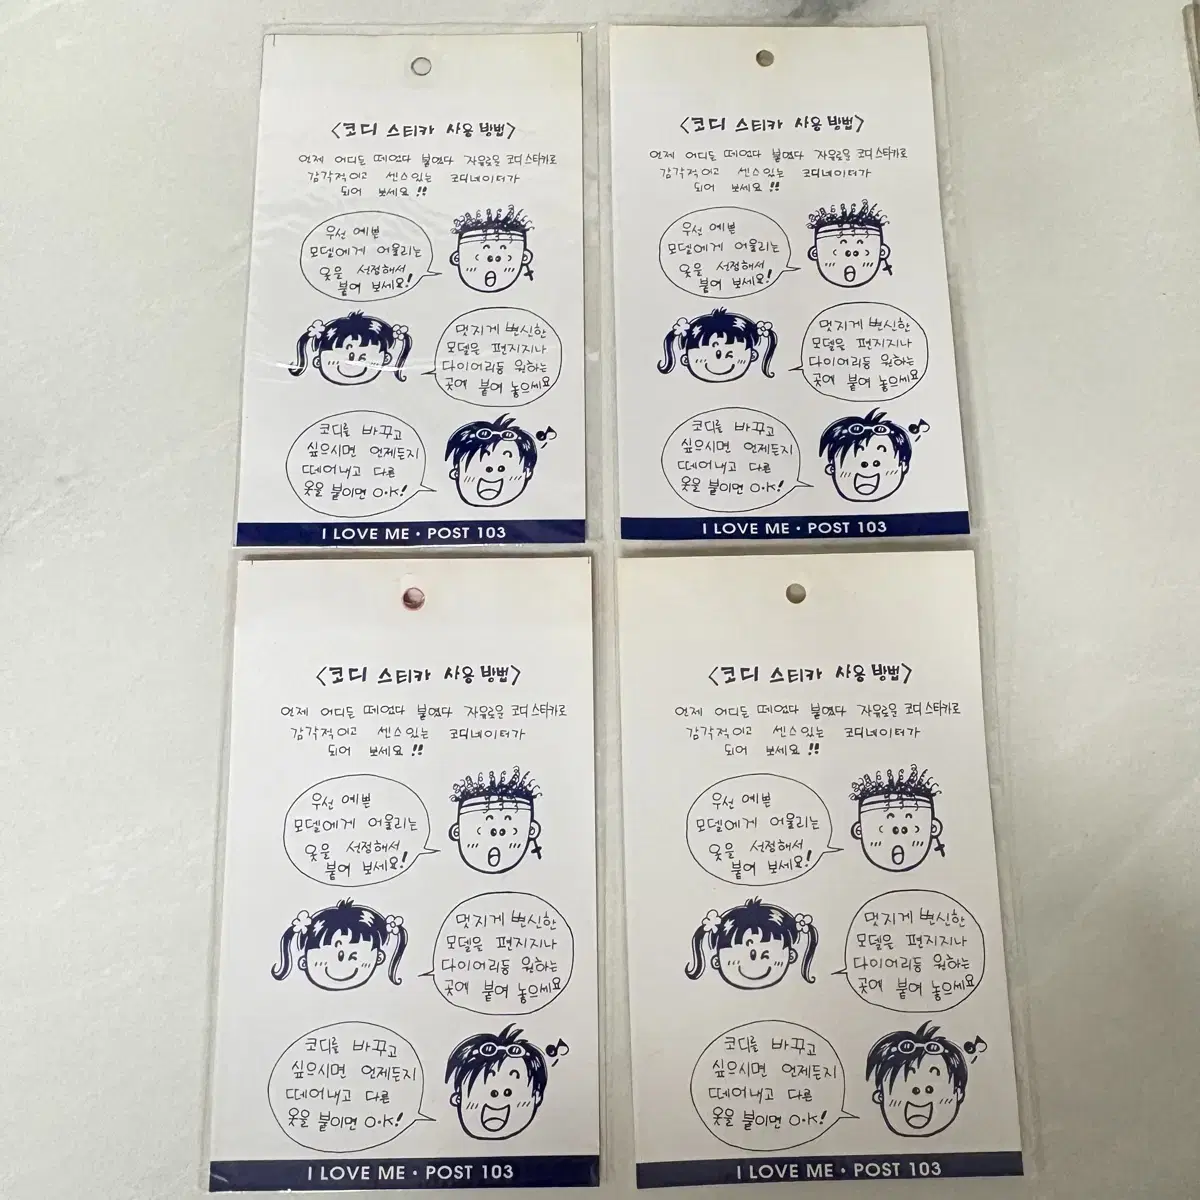 <코디 스티카 사용 방법>
언제 어디든 떼었다 붙였다 자유로운 코디스티카로
감각적이고 센스있는 코디네이터가
되어 보세요!!
우선 예쁜
모델에게 어울리는
옷을 선점해서
붙여 보세요!
멋지게 변신한
모델을 편지지나
다이어리등 원하는
곳에 붙여 놓으세요
코디를 바꾸고
싶으시면 언제든지
떼어내고 다른
옷을 붙이면 O·K!
I LOVE ME · POST 103
<코디 스티카 사용 방법>
언제 어디든 떼었다 붙였다 자유로운 코디스티카로
감각적이고 센스있는 코디네이터가
되어 보세요!!
우선 예쁜
모델에게 어울리는
옷을 선점해서
붙여 보세요!
멋지게 변신한
모델을 편지지나
다이어리등 원하는
곳에 붙여 놓으세요
코디를 바꾸고
싶으시면 언제든지
떼어내고 다른
옷을 붙이면 O·K!
I LOVE ME · POST 103
<코디 스티카 사용 방법>
언제 어디든 떼었다 붙였다 자유로운 코디스티카로
감각적이고 센스있는 코디네이터가
되어 보세요!!
우선 예쁜
모델에게 어울리는
옷을 선점해서
붙여 보세요!
멋지게 변신한
모델을 편지지나
다이어리등 원하는
곳에 붙여 놓으세요
코디를 바꾸고
싶으시면 언제든지
떼어내고 다른
옷을 붙이면 O·K!
I LOVE ME · POST 103
<코디 스티카 사용 방법>
언제 어디든 떼었다 붙였다 자유로운 코디스티카로
감각적이고 센스있는 코디네이터가
되어 보세요!!
우선 예쁜
모델에게 어울리는
옷을 선점해서
붙여 보세요!
멋지게 변신한
모델을 편지지나
다이어리등 원하는
곳에 붙여 놓으세요
코디를 바꾸고
싶으시면 언제든지
떼어내고 다른
옷을 붙이면 O·K!
I LOVE ME · POST 103